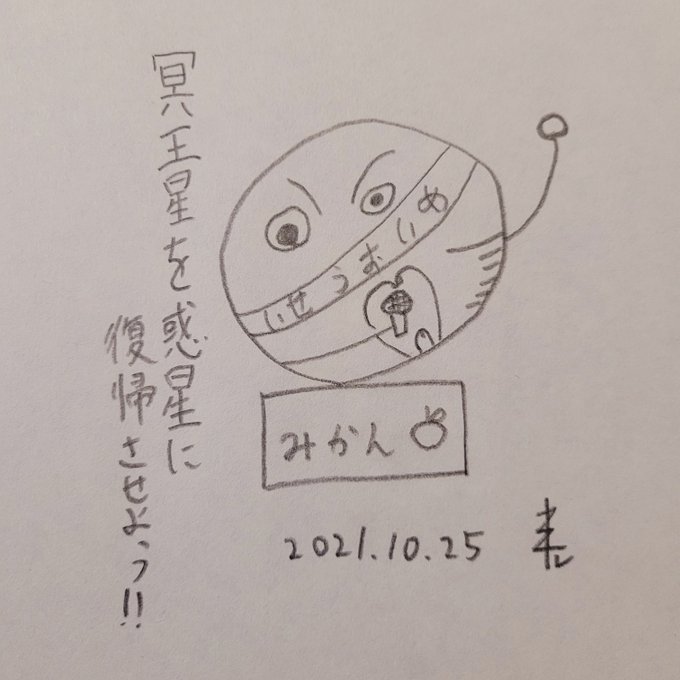 冥王星を惑星に
復帰させよっ!!
めいおうせい
みかん
2021.10.25